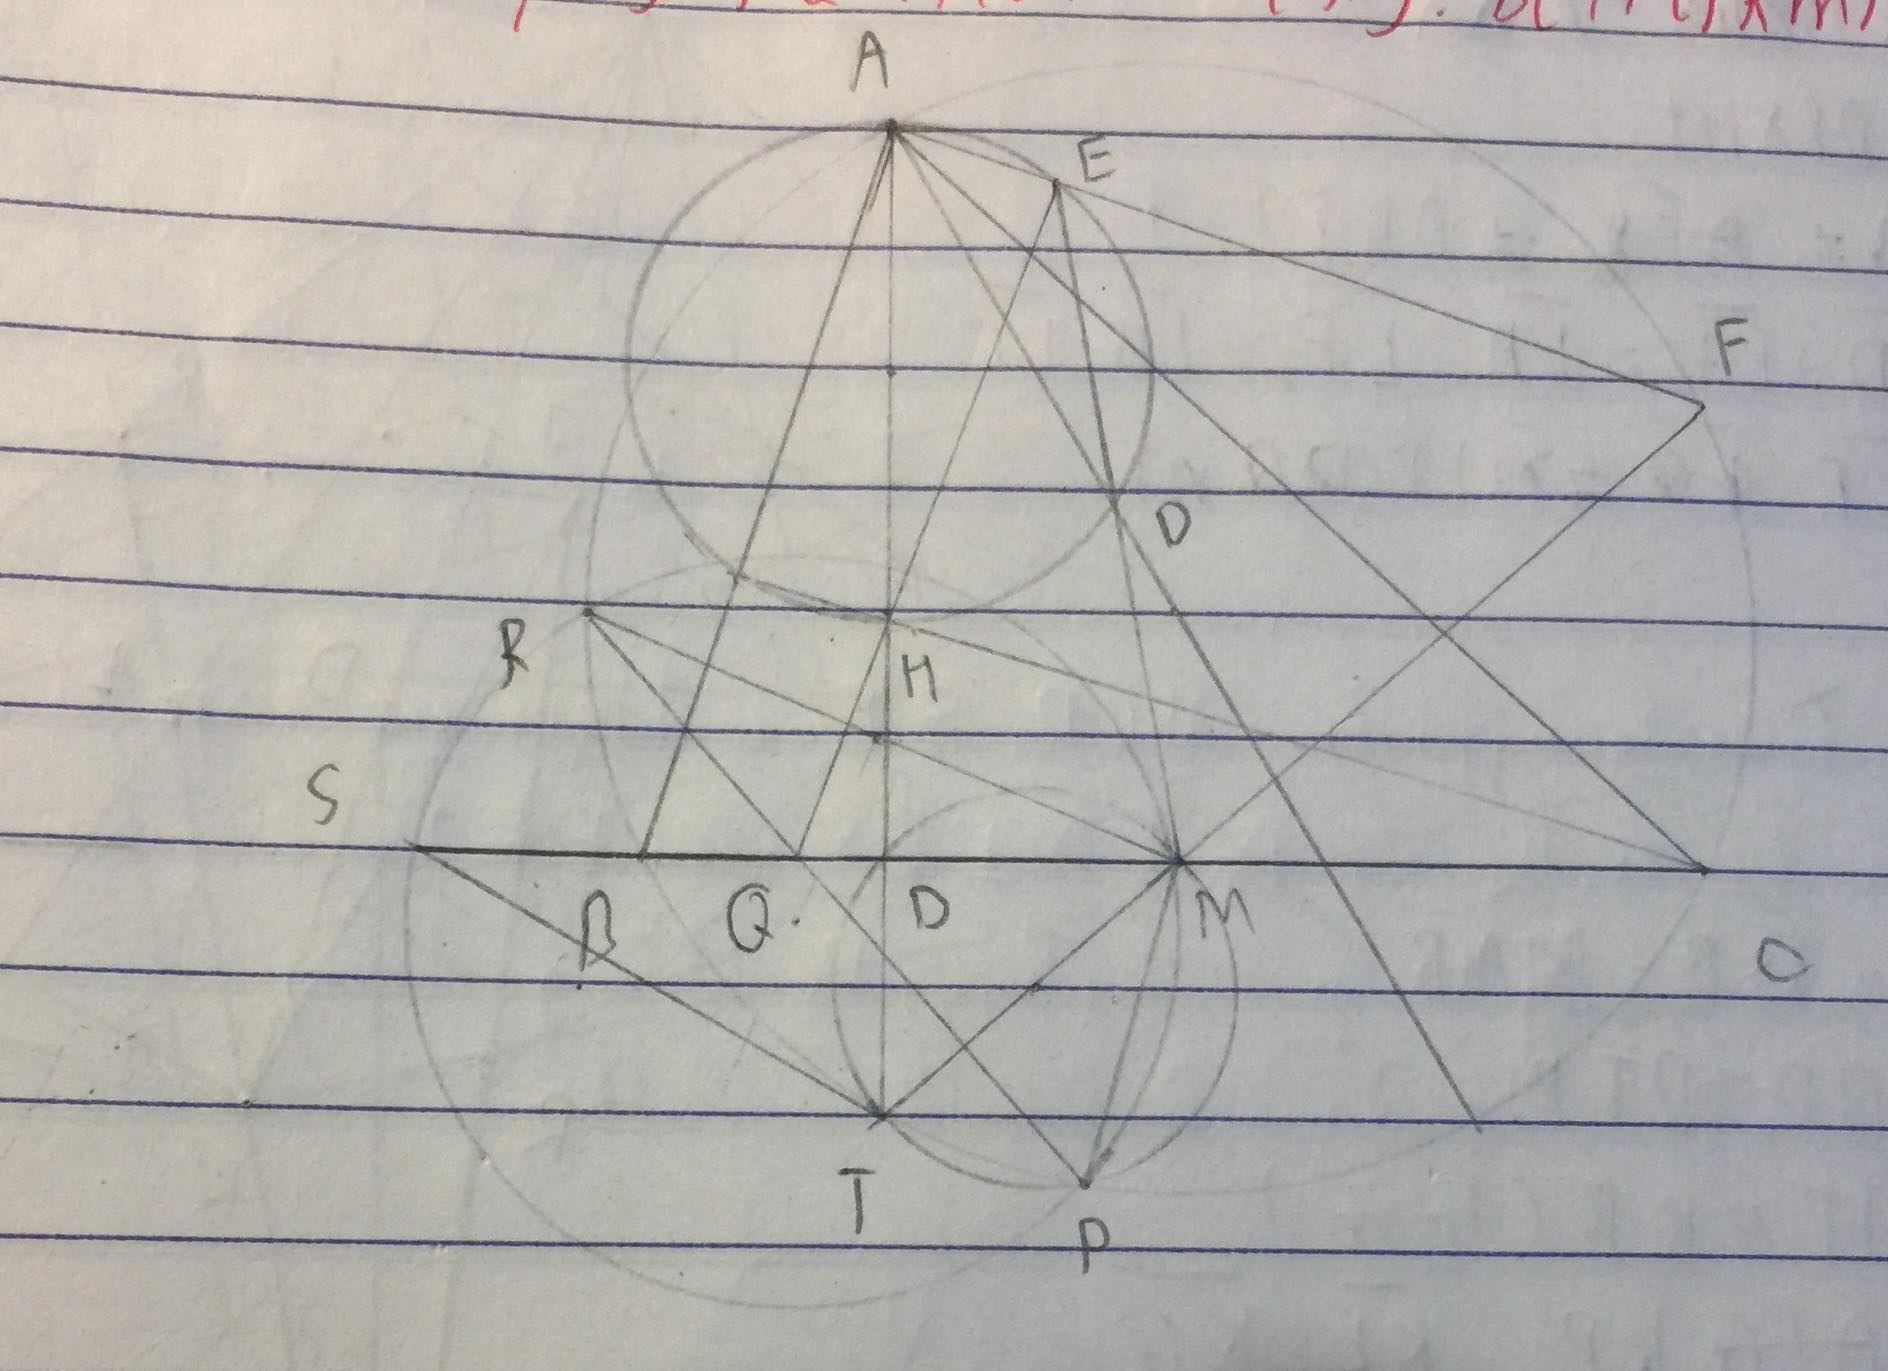 A
E
F
D
R
H
S
B Q D M
C
T
P